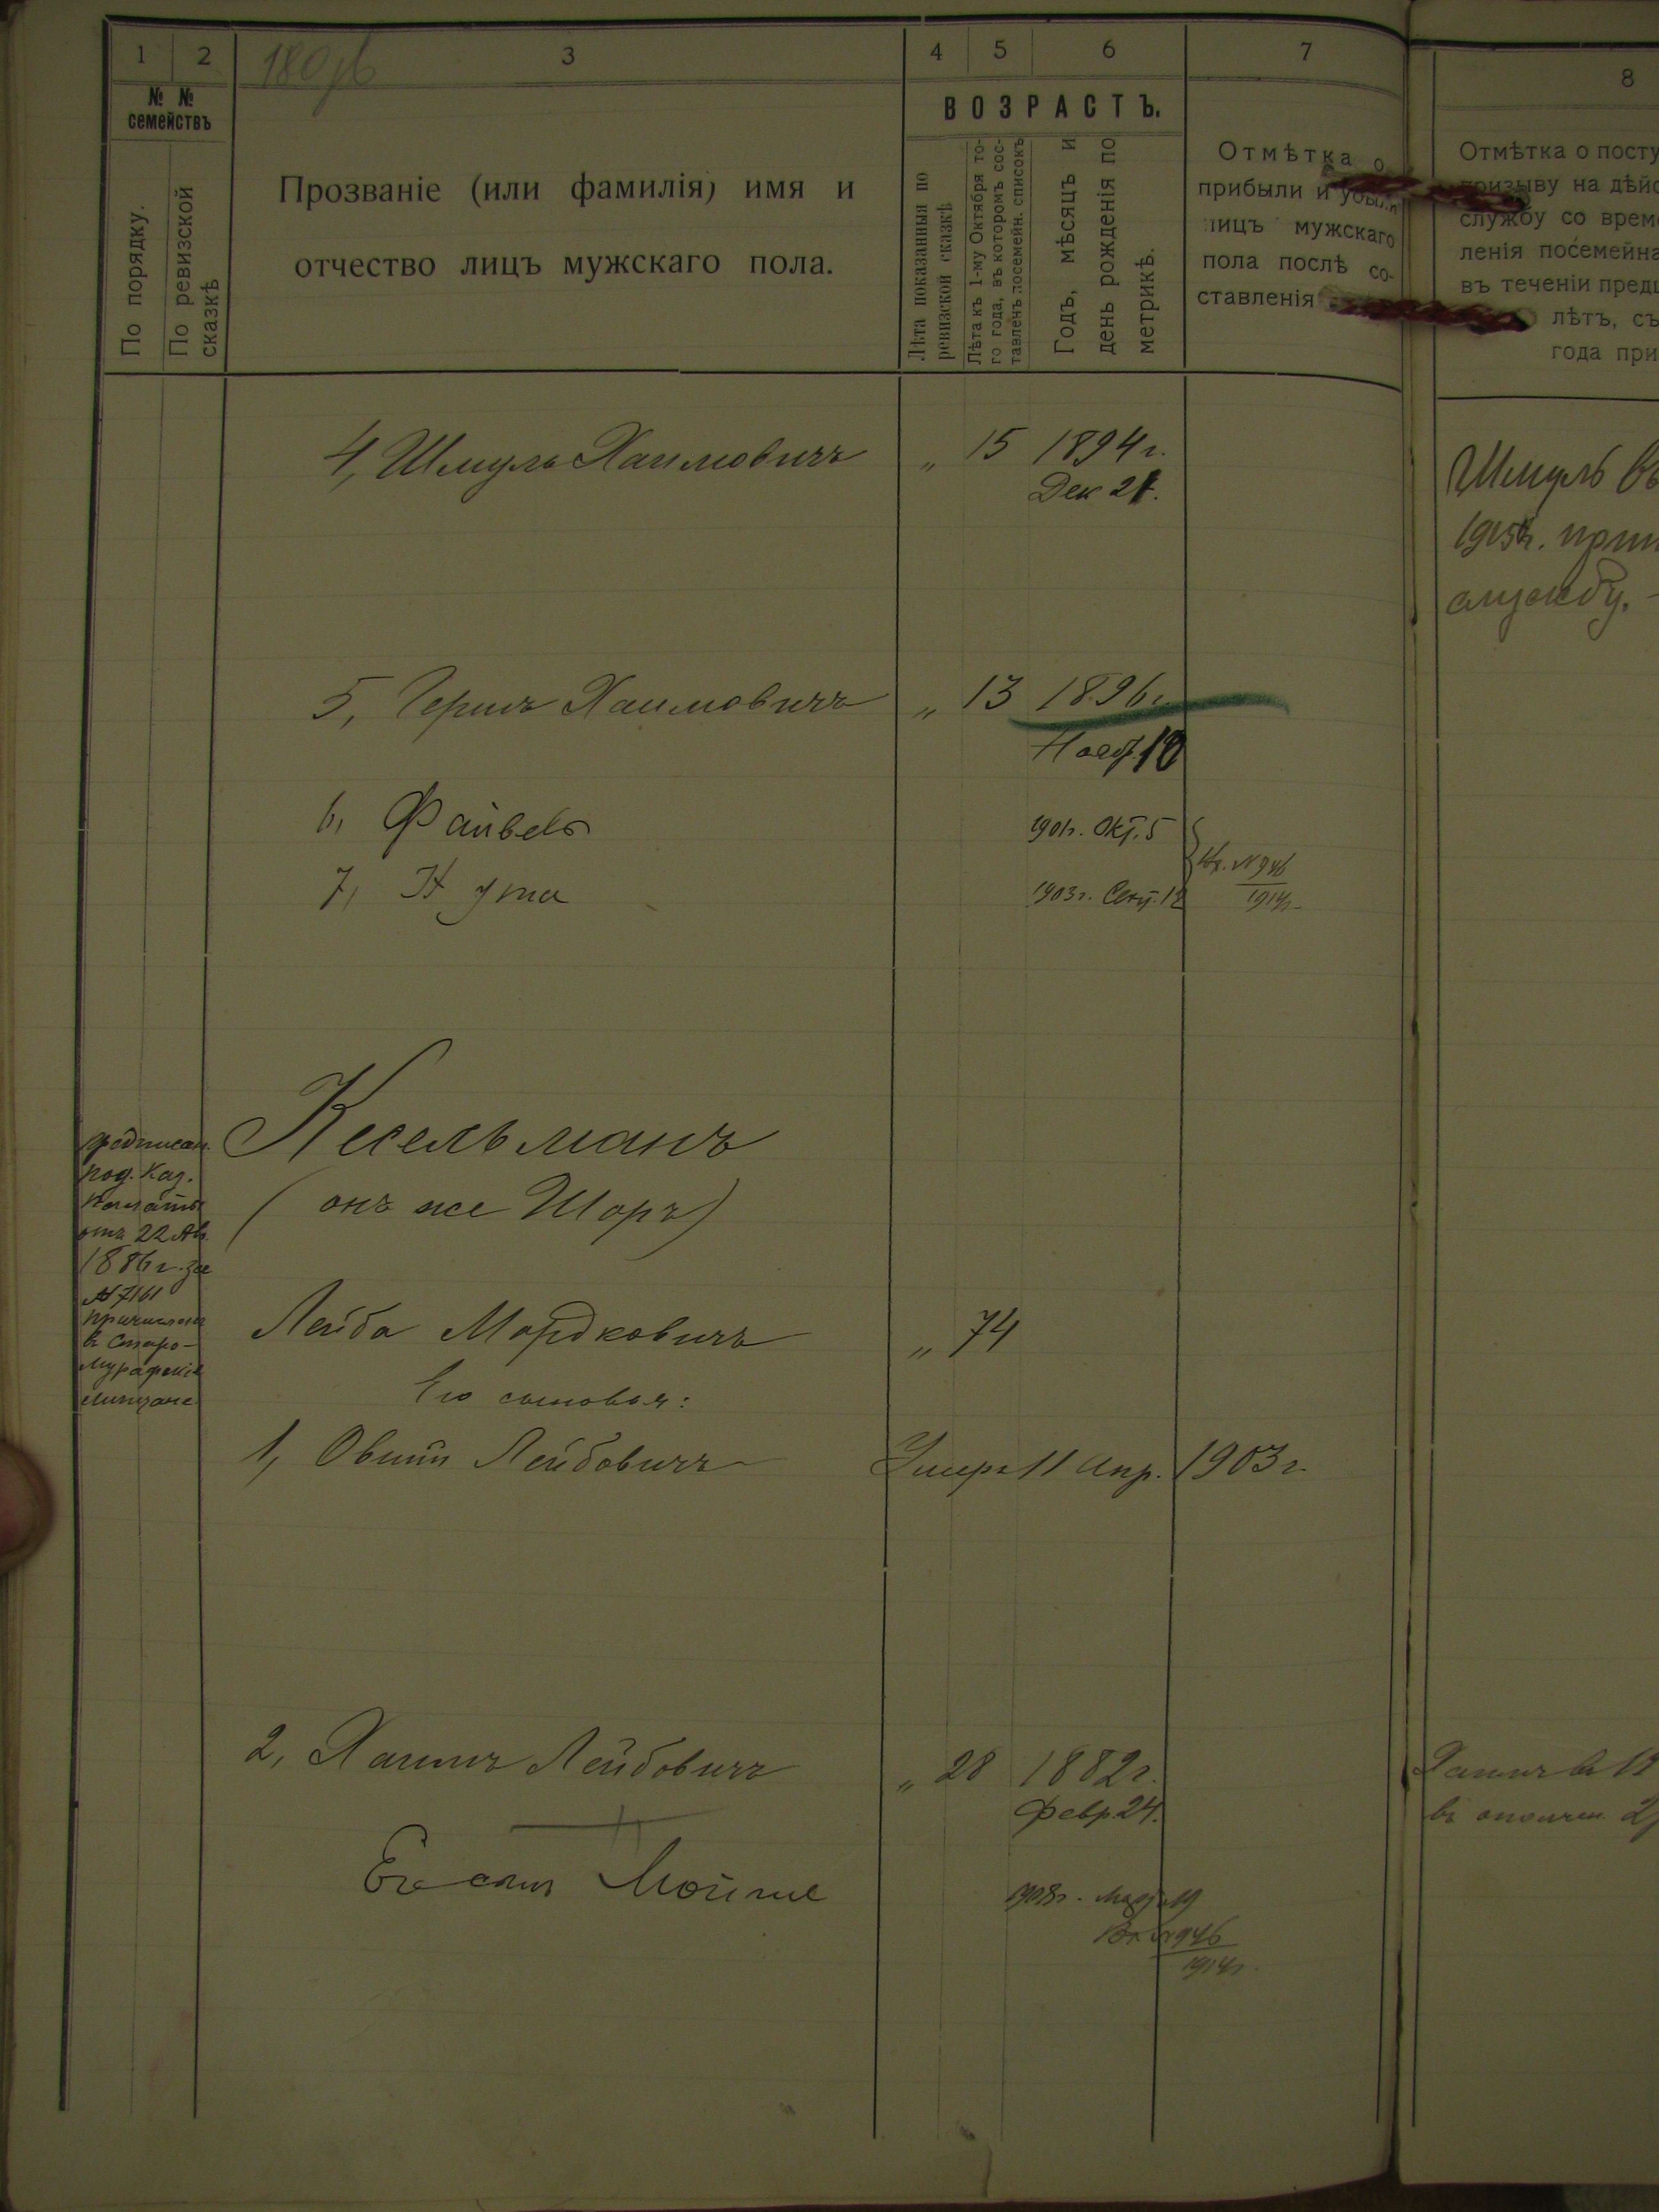 1 2 180 об 3 4 5 6 7 8
№ №
семействъ
По порядку.
По ревизской
сказкѣ
Прозваніе (или фамилія) имя и
отчество лицъ мужскаго пола.
ВОЗРАСТЪ.
Лѣта показанныя по
ревизской сказкѣ
Лѣта къ 1-му Октября то-
го года, въ которомъ сос-
тавленъ посемейн. списокъ
Годъ, мѣсяцъ и
день рожденія по
метрикѣ.
Отмѣтка о
прибыли и убыли
лицъ мужскаго
пола послѣ со-
ставленія
Отмѣтка о посту
призыву на дѣйс
службу со врем
ленія посемейна
въ теченіи пред
лѣтъ, съ
года при
4, Шмуль Хаимовичъ „ 15 1894 г.
Дек 21.
Шмуль въ
1915 г. прин
службу.
5, Гершъ Хаимовичъ „ 13 1896 г.
Нояб. 10
6, Файвель 1901 г. Окт. 5
7, Нута 1903 г. Сент. 12
№ 946
1914 г.
Кесельманъ
(онъ же Шоръ)
предписан.
под. Каз.
Палаты
отъ 22 Ав.
1886 г. за
№ 7161
причисленъ
въ Старо-
Мурафскіе
мѣщане
Лейба Мордковичъ „ 74
Его сыновья:
1, Овшій Лейбовичъ Умеръ 11 Апр. 1903 г.
2, Хаимъ Лейбовичъ „ 28 1882 г.
Февр. 24.
Хаимъ въ 19
въ ополчен. 2
Его сынъ Мойше 1908 г. Март. 19
№ 946
1914 г.